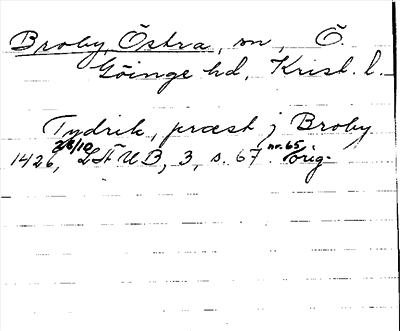 Broby, Östra, sn, Ö.
Göinge hd, Krist. l.
Tydrik, præst j Broby
1426 28/10, LÄUB, 3, s. 67. nr. 65 orig.